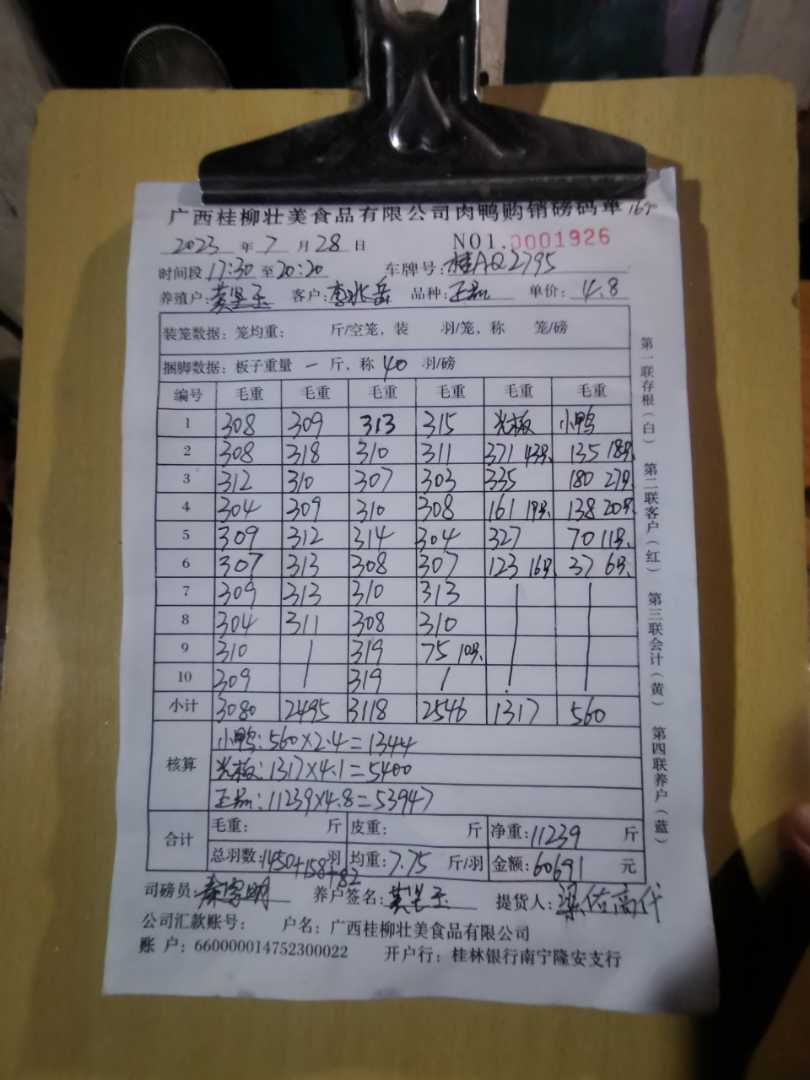 广西桂柳壮美食品有限公司肉鸭购销磅码单
2023 年 7 月 28 日 NO1.0001926
时间段 17:30 至 20:20 车牌号: 桂AQ2795
养殖户: 客户: 品种: 正品 单价: 4.8
装笼数据: 笼均重: 斤/空笼, 装 羽/笼, 称 笼/磅
捆脚数据: 板子重量 一 斤, 称 40 羽/磅
编号 毛重 毛重 毛重 毛重 毛重 毛重
1 308 309 313 315 光板 小鸭
2 308 318 310 311 371 43只 135 18只
3 312 310 307 303 335 180 27只
4 304 309 310 308 161 19只 138 20只
5 309 312 314 304 327 70 11只
6 307 313 308 307 123 16只 37 6只
7 309 313 310 313 | |
8 304 311 308 310 | |
9 310 | 319 75 10只 | |
10 309 | 319 | | |
小计 3080 2495 3118 2546 1317 560
核算
小鸭: 560×2.4=1344
光板: 1317×4.1=5400
正品: 11239×4.8=53947
合计 毛重: 斤 皮重: 斤 净重: 11239 斤
总羽数: 1450+158+82 羽 均重: 7.75 斤/羽 金额: 60691 元
司磅员: 养户签名: 提货人:
公司汇款账号: 户名: 广西桂柳壮美食品有限公司
账 户: 660000014752300022 开户行: 桂林银行南宁隆安支行
第一联存根(白) 第二联客户(红) 第三联会计(黄) 第四联养户(蓝)